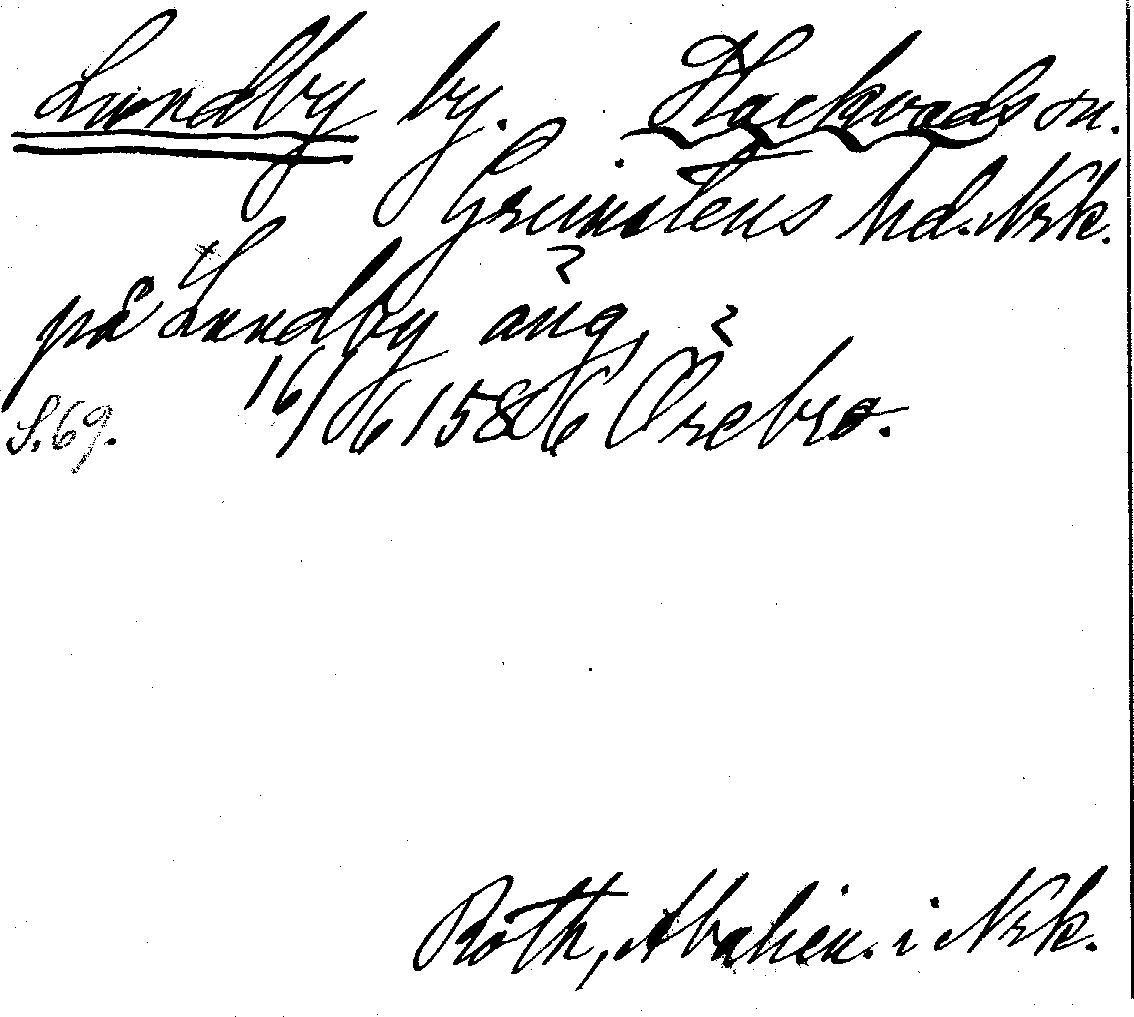 Lundby by. Hackvads sn.
Grimstens hd. Nrk.
på Lundby äng,
16/6 1586 Örebro.
S. 69.
Roth,                i Nrk.